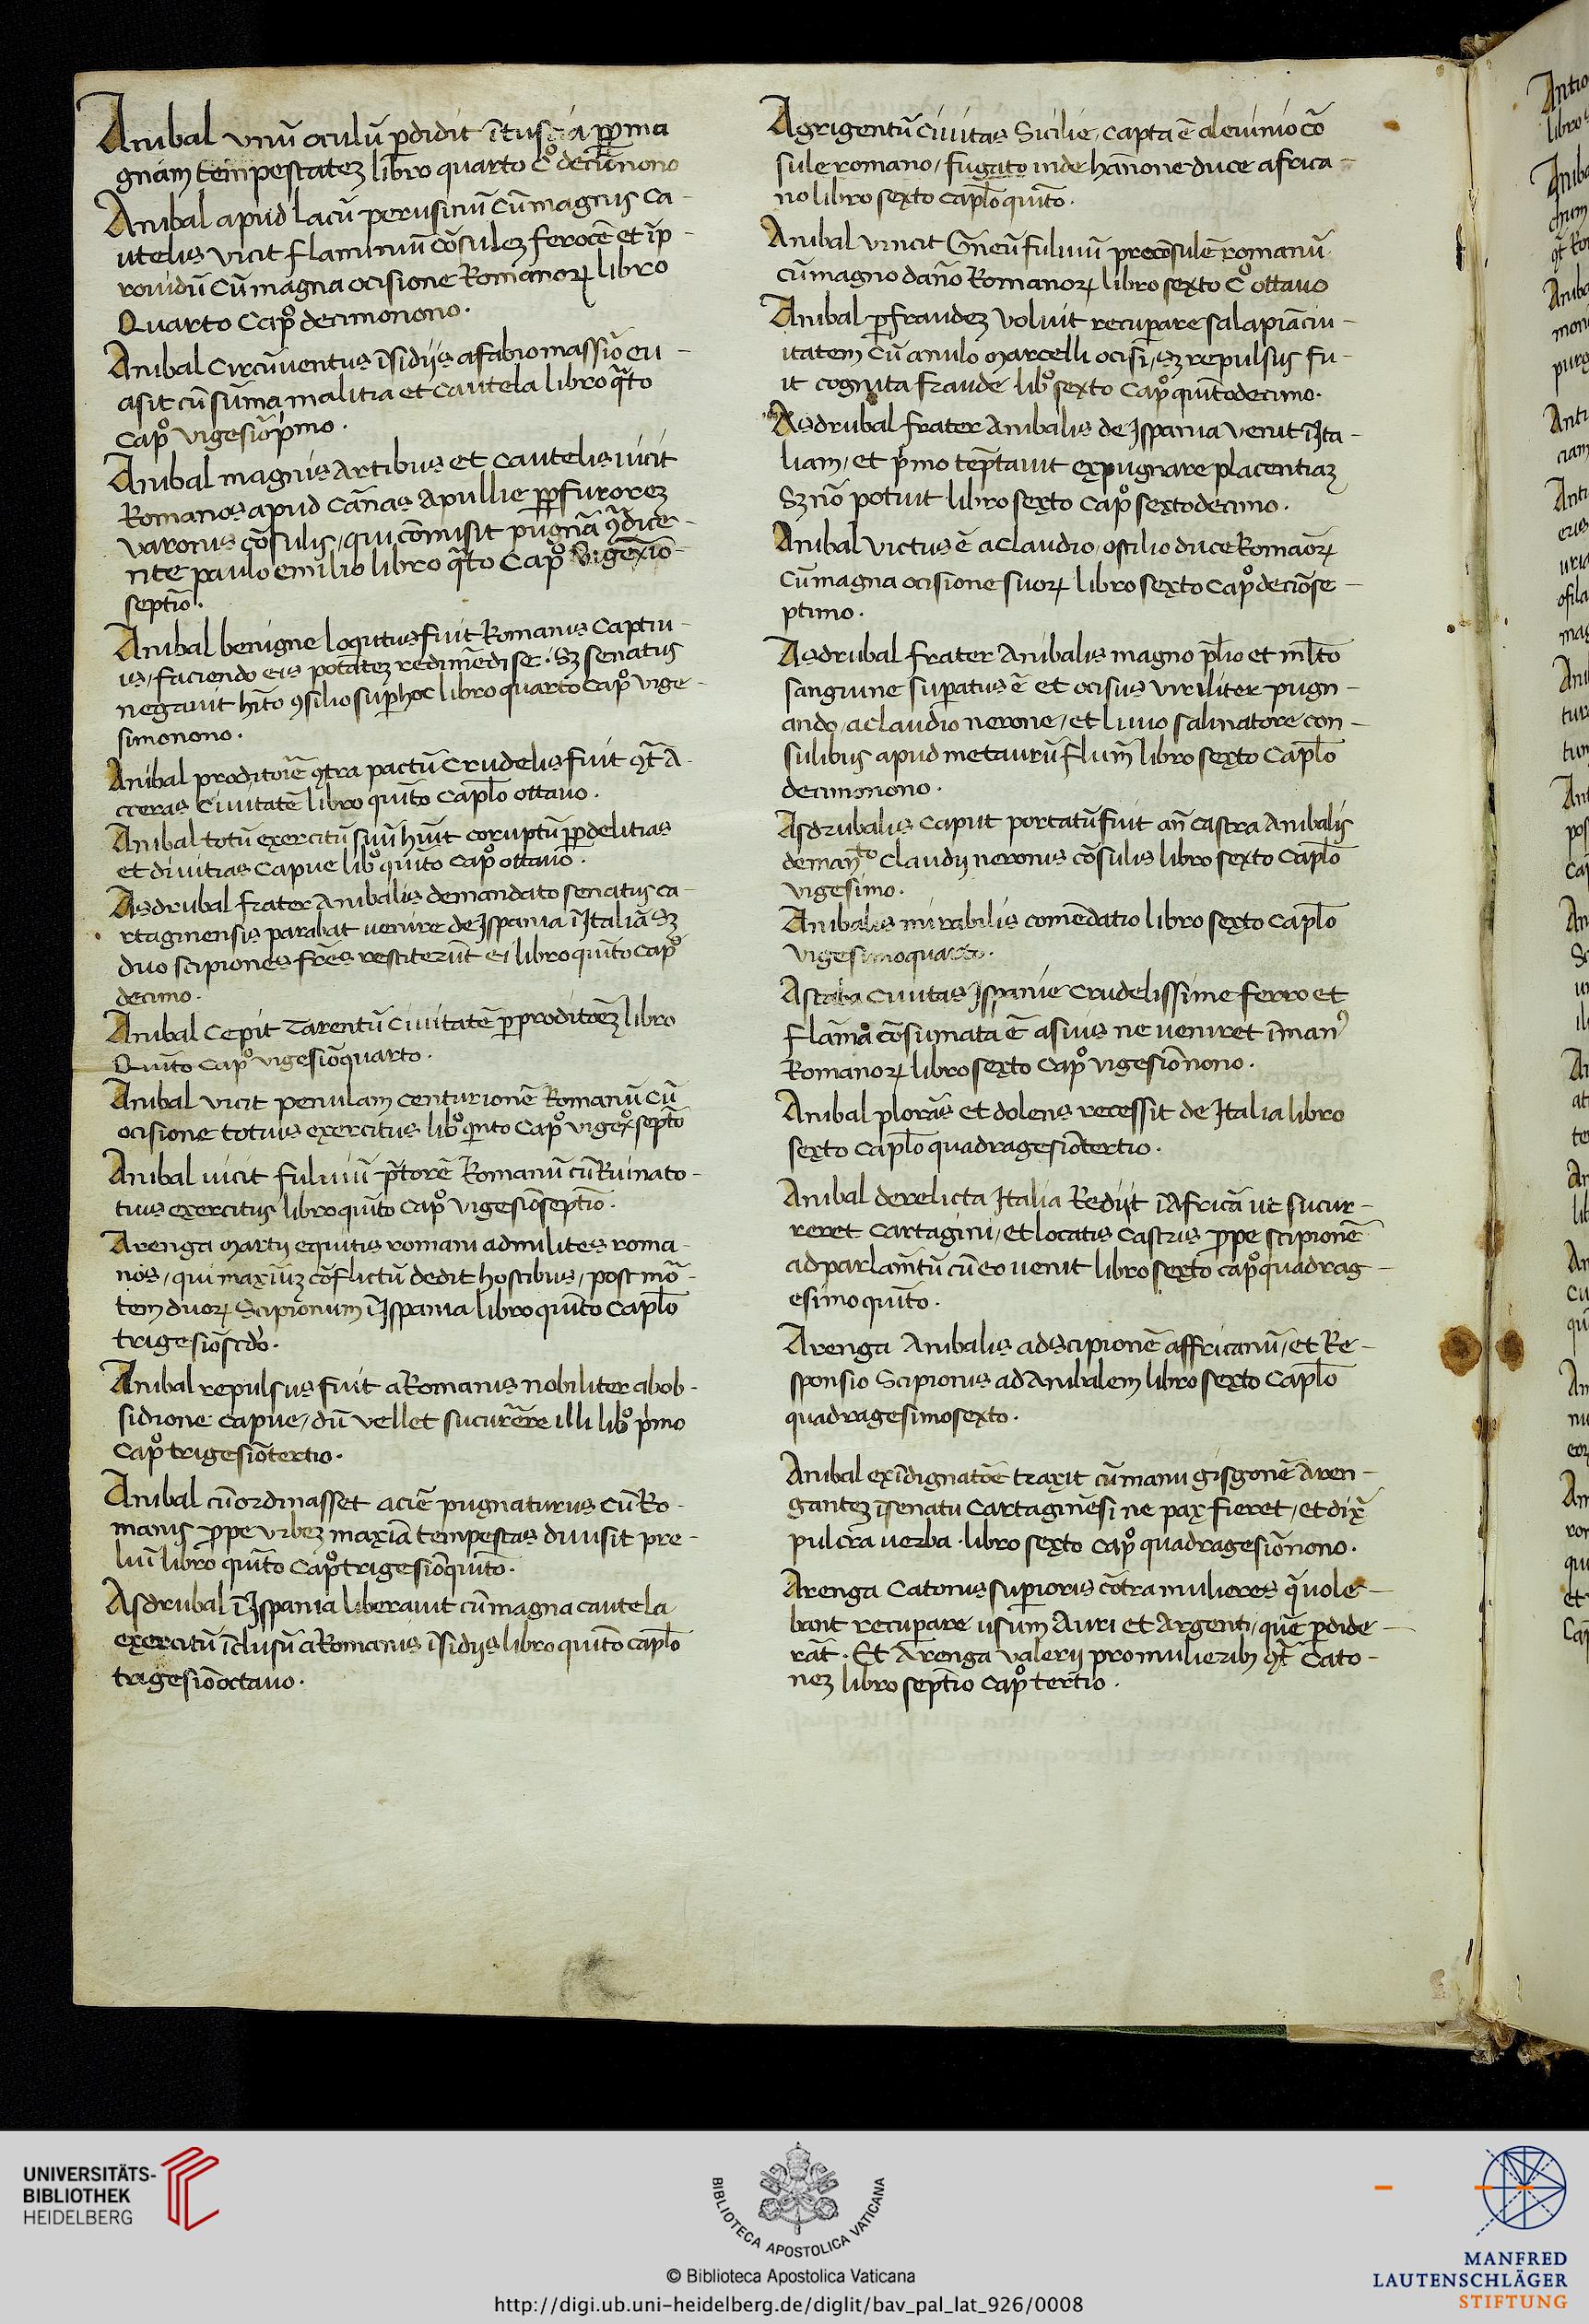 Anibal unũ oculũ pdidit ĩ tuscia pp ma
gnam tempestatez libro quarto c̊ decĩnono
Anibal apud lacũ perusinũ cũ magnis ca-
utelis vicit flaminiũ cõsulez ferocẽ et ĩp-
rovidũ cũ magna ocisione Romanoꝝ libro
Quarto Cap̊ decimonono.
Anibal Circũventus ĩsidijs a fabio massiõ eu-
asit cũ sũma malitia et cautela libro q̃to
Cap̊ vigesiõ pimo.
Anibal magnis artibus et cautelis uicit
Romanos apud Cãnas apullie pp furorez
varonis cõsulis, qui cõmisit pugnã ꝯ̃dice-
nte paulo emilio libro q̃to Cap̊ vigexiõ-
septiõ.
Anibal benigne loqutus fuit Romanis captiu-
is, faciendo eis potatez redimẽdi se. Sz senatus
negauit hĩto ꝯsilio sup hoc libro quarto cap̊ vige-
simonono.
Anibal proditoiẽ ꝯtra pactũ crudelis fuit ꝯt̃ a-
cceras Civitatẽ libro quĩto Caplo ottauo.
Anibal totũ exercitũ suũ hũit coruptũ pp delitias
et divitias Capue lib̊ quĩto cap̊ ottauo.
Asdrubal frater Anibalis de mandato senatus ca-
rtaginensis parabat uenire de Ispania ĩ Italiã Sz
duo scipiones fr̃es restiterũt ei libro quĩto cap̊
decimo.
Anibal Cepit Tarentũ Civitatẽ p proditoẽz libro
Quĩto Cap̊ vigesiõquarto.
Anibal vicit penulam centurionẽ Romanũ cũ
ocisione totius exercitus lib̊ qinto Cap̊ vigex̊septĩo
Anibal uicit fuluiũ p̃torẽ Romanũ cũ Ruina to-
tius exercitus libro quĩto Cap̊ vigesiõseptiõ.
Arenga Martij equitis romani ad milites roma-
nos, qui maxiũz cõflictũ dedit hostibus, post mõ-
tem duoꝝ Scipionum ĩ Ispania libro quĩto Caplo
trigesiõscdo.
Anibal repulsus fuit a Romanis nobiliter ab ob-
sidione capue, dũ vellet sucurẽre illi lib̊ pimo
Cap̊ trigesiõtertio.
Anibal cũ ordinasset aciẽ pugnaturus cũ Ro-
manis ppe urbez maxiã tempestas divisit pre-
liũ libro quĩto Cap̊ trigesiõquĩto.
Asdrubal ĩ Ispania liberauit cũ magna cautela
exercitũ ĩclusũ a Romanis ĩsidijs libro quĩto caplo
trigesiõoctauo.
Agrigentũ Civitas Sicilie, capta ẽ a leuinio cõ
sule romano, fugato inde hãnone duce africa-
no libro sexto caplo quĩto.
Anibal vincit Gneũ fuluiũ procõsulẽ romanũ
cũ magno dãno Romanoꝝ libro sexto c̊ ottauo
Anibal p fraudez voluit recuperare salapiã ciu-
itatem Cũ anulo marcelli ocisi, sz repulsus fu-
it cognita fraude lib̊ sexto Cap̊ quĩtodecimo.
Asdrubal frater Anibalis de Ispania venit ĩ Ita-
liam, et pimo teptauit expugnare placentiaz
Sz nõ potuit libro sexto Cap̊ sextodecimo.
Anibal victus ẽ a Claudio, ostilio duce Romaõꝝ
Cũ magna ocisione suoꝝ libro sexto Cap̊ deciõse-
ptimo.
Asdrubal frater Anibalis magno plio et mlto
sanguine supatus ẽ et ocisus viriliter pugn-
ando, a Claudio nerone, et Liuio salinatore con-
sulibus apud metaurũ flum̃ libro sexto Caplo
decimonono.
Asdrubalis caput portatũ fuit añ castra Anibalis
de mandto Claudij neronis cõsulis libro sexto Caplo
vigesimo.
Anibalis mirabilis comẽdatio libro sexto Caplo
vigesimoquarto.
Astaba Civitas Ispanie Crudelissime ferro et
Flãma cõsumata ẽ a suis ne veniret ĩ man9
Romanoꝝ libro sexto Cap̊ vigesiõnono.
Anibal plorãs et dolens recessit de Italia libro
sexto Caplo quadragesiõtertio.
Anibal derelicta Italia Redijt ĩ Africã ut sucur-
reret Cartagini, et locatis castris ppe scipionẽ
ad parlam̃tũ cũ eo uenit libro sexto cap̊ quadrag-
esimoquĩto.
Arenga Anibalis ad Scipionẽ affricanũ, et Re-
sponsio Scipionis ad Anibalem libro sexto Caplo
quadragesimosexto.
Anibal ex ĩdignatõe traxit cũ manu gisgonẽ Aren-
gantez ĩ senatu Cartaginẽsi ne pax fieret, et dixit
pulcra uerba. libro sexto Cap̊ quadragesiõnono.
Arenga Catonis supioris cõtra mulieres q̃ uole-
bant recuperare usum Auri et Argenti, quẽ pdide-
rãt. Et Arenga valerij pro mulierib ꝯt̃ Cato-
nez libro septiõ Cap̊ tertio.
UNIVERSITÄTS-
BIBLIOTHEK
HEIDELBERG
BIBLIOTECA APOSTOLICA VATICANA
© Biblioteca Apostolica Vaticana
http://digi.ub.uni-heidelberg.de/diglit/bav_pal_lat_926/0008
MANFRED
LAUTENSCHLÄGER
STIFTUNG